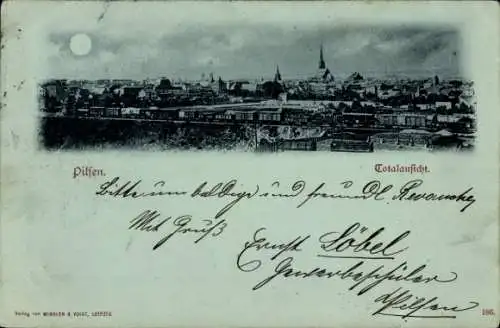 Pilsen.
Totalansicht.
Bitte um baldige und freundl. Revanche
Mit Gruß
Ernst Löbel
Gewerbeschüler
Pilsen
Verlag von WINKLER & VOIGT, LEIPZIG
186.